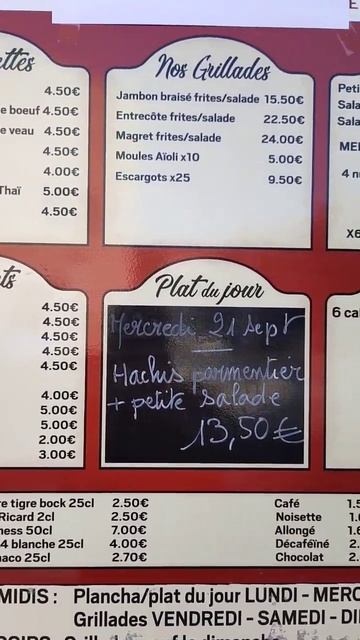 ettes
4.50€
e boeuf 4.50€
e veau 4.50€
4.50€
4.00€
Thaï 5.00€
4.50€
Nos Grillades
Jambon braisé frites/salade 15.50€
Entrecôte frites/salade 22.50€
Magret frites/salade 24.00€
Moules Aïoli x10 5.00€
Escargots x25 9.50€
Peti
Sala
Sala
4 n
X6
ts
4.50€
4.50€
4.50€
4.50€
4.50€
4.00€
5.00€
5.00€
2.00€
3.00€
Plat du jour
Mercredi 21 Sept
Hachis parmentier
+ petite salade
13,50€
6 ca
re tigre bock 25cl 2.50€
Ricard 2cl 2.50€
ness 50cl 7.00€
4 blanche 25cl 4.00€
naco 25cl 2.70€
Café 1.5
Noisette 1.
Allongé 1.
Décaféïné 2.
Chocolat 2.
MIDIS : Plancha/plat du jour LUNDI - MERC
Grillades VENDREDI - SAMEDI - DI